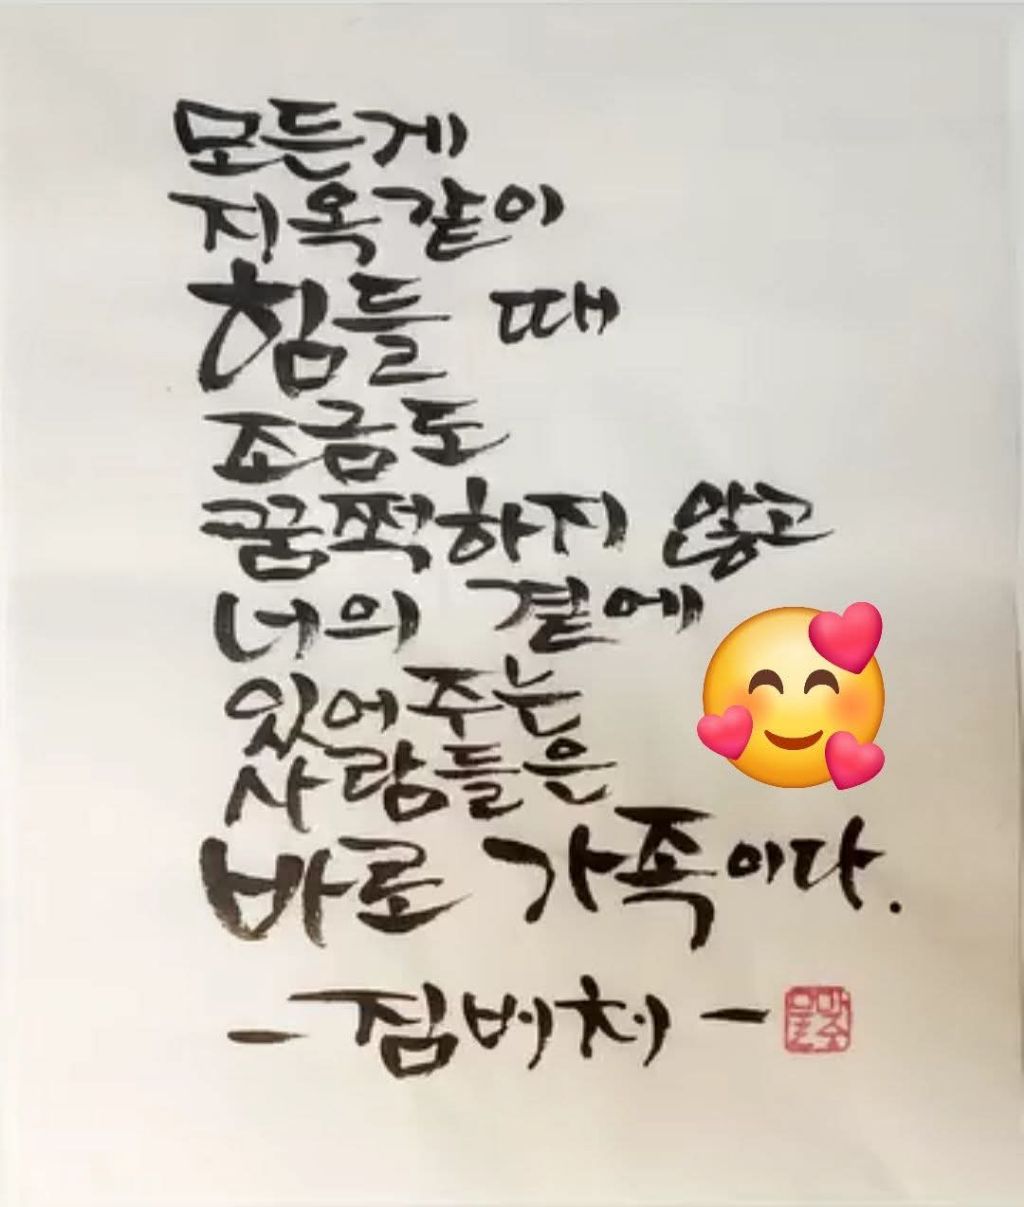 모든게
지옥같이
힘들 때
조금도
꿈쩍하지 않고
너의 곁에
있어주는
사람들은
바로 가족이다.
- 짐버처 -